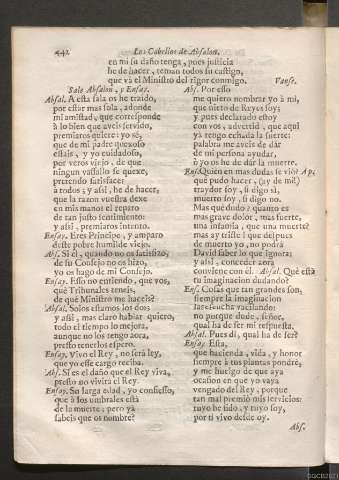 442
Los Cabellos de Absalon.
en mi su daño tenga, pues justicia
he de hacer, teman todos su castigo,
que và el Ministro del rigor conmigo. Vanse.
Sale Absalon, y Ensay.
Absal. A esta sala os he traido,
por estàr mas sola, adonde
mi amistad, que corresponde
à lo bien que aveis servido,
premiaros quiere: yo sè,
que de mi padre quexoso
estais, y yo cuidadoso,
por veros viejo, de que
ningun vassallo se quexe,
pretendo satisfacer
à todos; y assi, he de hacer,
que la razon vuestra dexe
en mis manos el reparo
de tan justo sentimiento:
y assi, premiaros intento.
Ensay. Eres Principe, y amparo
deste pobre humilde viejo.
Abs. Si èl, quando no os satisfizo,
de su Consejo no os hizo,
yo os hago de mi Consejo.
Ensay. Esso no entiendo, que vos,
què Tribunales teneis,
de què Ministro me haceis?
Absal. Solos estamos los dos
y assi, mas claro hablar quiero,
todo el tiempo lo mejora,
aunque no los tengo aora,
presto tenerlos espero.
Ensay. Vivo el Rey, no serà ley,
que yo esse cargo reciba.
Abs. Si es el daño que el Rey viva,
presto no vivirà el Rey.
Ensay. Su larga edad, yo confiesso,
que à los umbrales està
de la muerte: pero yà
sabeis que os nombre?
Abs. Por esso
me quiero nombrar yo à mi,
que nieto de Reyes soy;
y pues declarado estoy
con vos, advertid, que aqui
yà tengo echada la suerte:
palabra me aveis de dàr
de mi persona ayudar,
ò yo os he de dàr la muerte.
Ens. Quien en mas dudas se viò? Ap.
què puedo hacer, (ay de mi!)
traydor soy, si digo sì,
muerto soy, si digo no.
Mas què dudo? quanto es
mas grave dolor, mas fuerte,
una infamia, que una muerte?
mas ay triste! que despues
de muerto yo, no podrà
David saber lo que ignora;
y assi, conceder aora
conviene con èl. Absal. Què està
tu imaginacion dudando?
Ens. Cosas que tan grandes son,
siempre la imaginacion
las escucha vacilando:
no porque dude, señor,
qual ha de ser mi respuesta.
Absal. Pues di, qual ha de ser?
Ensay. Esta,
que hacienda, vida, y honor
siempre à tus plantas pondrè,
y me huelgo de que aya
ocasion en que yo vaya
vengado del Rey, porque
tan mal premiò mis servicios:
tuyo he sido, y tuyo soy,
por ti vivo desde oy.
Abs.